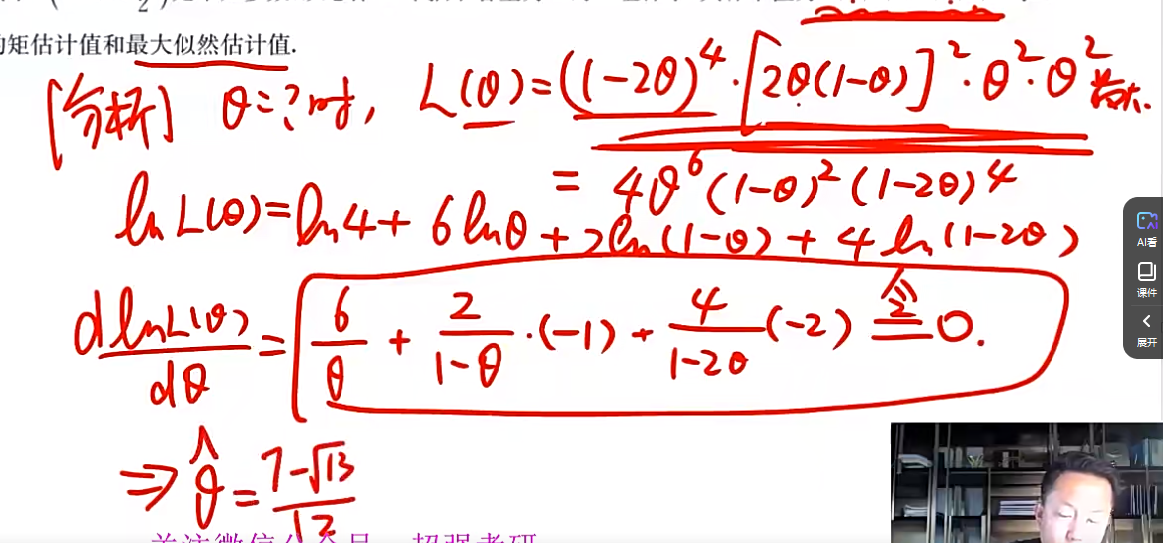 的矩估计值和最大似然估计值.
[分析] θ=?时, L(θ)=(1-2θ)⁴·[2θ(1-θ)]²·θ²·θ² 最大.
= 4θ⁶(1-θ)²(1-2θ)⁴
ln L(θ)=ln4+6lnθ+2ln(1-θ)+4ln(1-2θ)
dlnL(θ)/dθ = 6/θ + 2/(1-θ)·(-1) + 4/(1-2θ)(-2) 令= 0.
⇒ θ̂ = (7-√13)/12
AI看
课件
展开